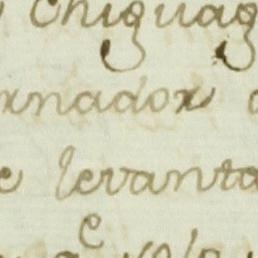 chiguag
rnador
e levanta
e